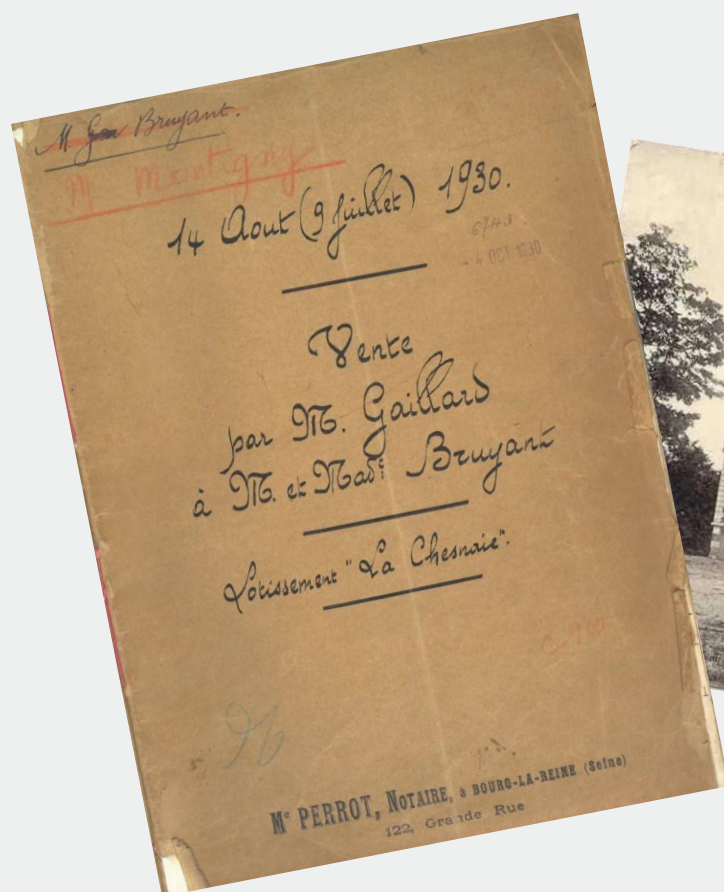 M Bruyant.
M Montigny
14 Aout (9 juillet) 1930.
6743
- 4 OCT 1930
Vente
par M. Gaillard
à M. et Made Bruyant
Lotissement "La Chesnaie".
Me PERROT, NOTAIRE, à BOURG-LA-REINE (Seine)
122, Grande Rue